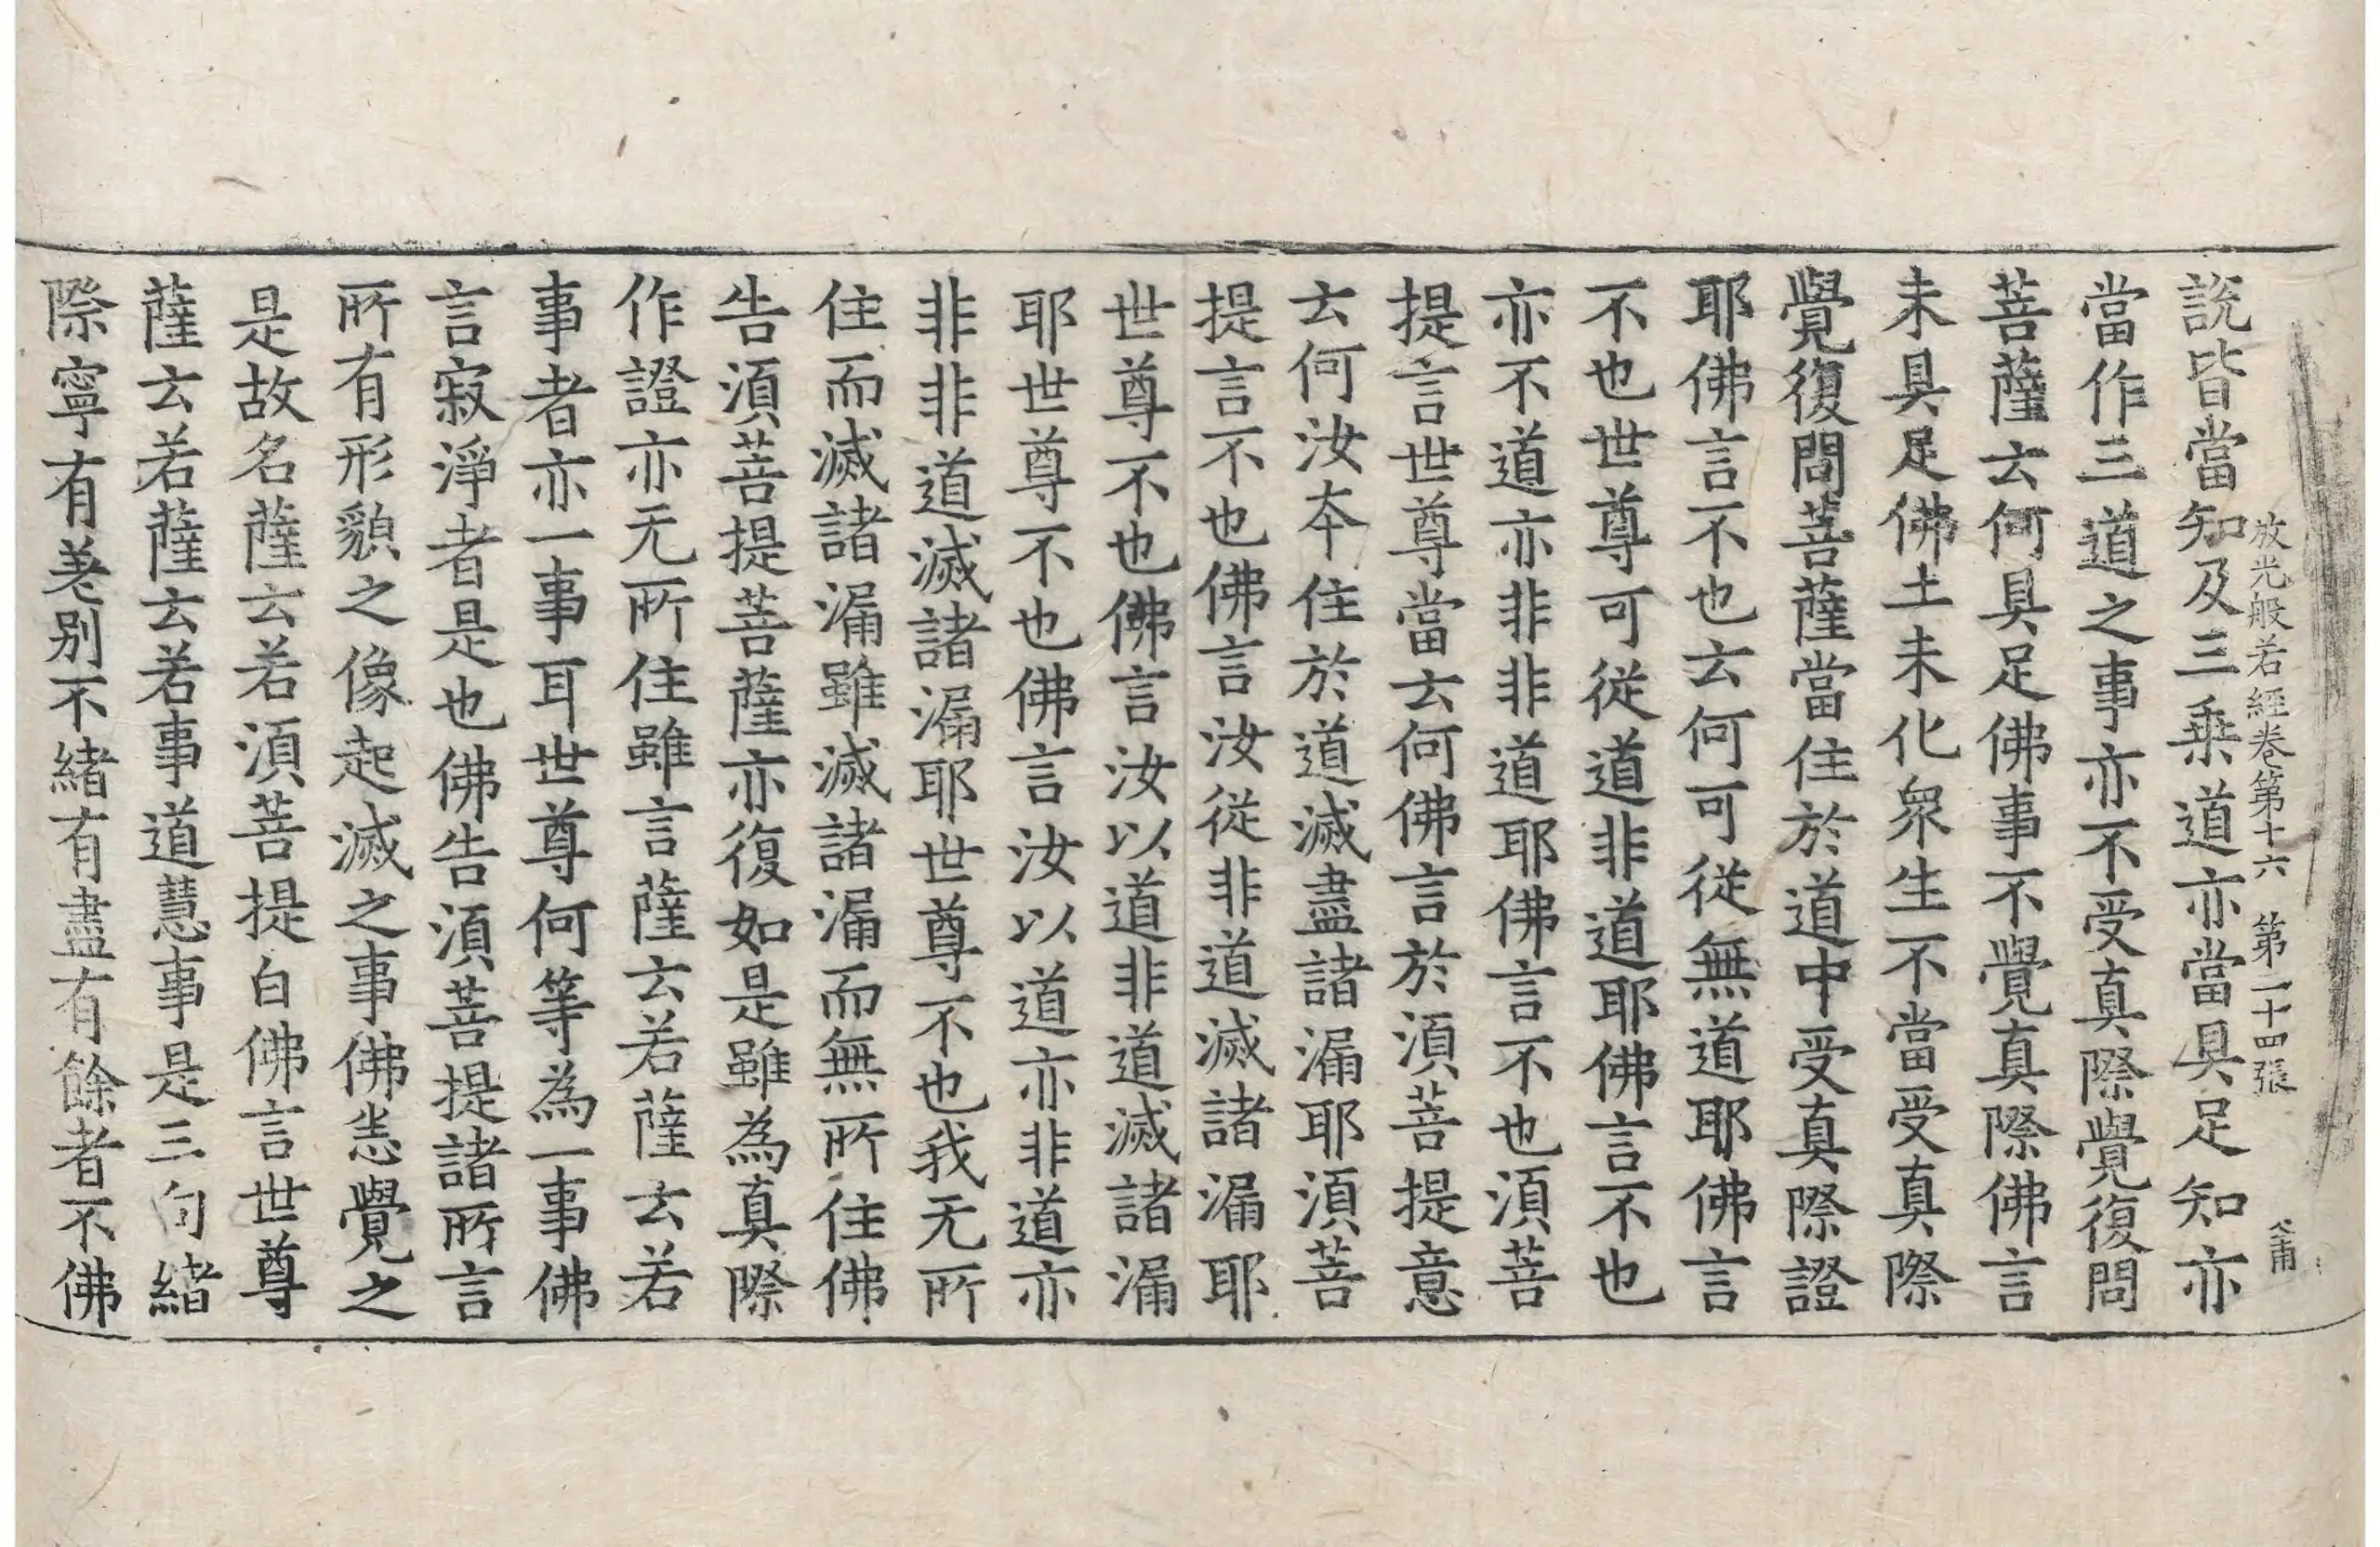 放光般若經卷第十六　第二十四張
説皆當知及三乗道亦當具足知亦
當作三道之事亦不受真際覺復問
菩薩云何具足佛事不覺真際佛言
未具足佛土未化衆生不當受真際
覺復問菩薩當住於道中受真際證
耶佛言不也云何可從無道耶佛言
不也世尊可從道非道耶佛言不也
亦不道亦非非道耶佛言不也須菩
提言世尊當云何佛言於須菩提意
云何汝夲住於道滅盡諸漏耶須菩
提言不也佛言汝從非道滅諸漏耶
世尊不也佛言汝以道非道滅諸漏
耶世尊不也佛言汝以道亦非道亦
非非道滅諸漏耶世尊不也我无所
住而滅諸漏雖滅諸漏而無所住佛
告須菩提菩薩亦復如是雖為真際
作證亦无所住雖言薩云若薩云若
事者亦一事耳世尊何等為一事佛
言寂淨者是也佛告須菩提諸所言
所有形貌之像起滅之事佛悉覺之
是故名薩云若須菩提白佛言世尊
薩云若薩云若事道慧事是三句緒
際寧有差别不緒有盡有餘者不佛